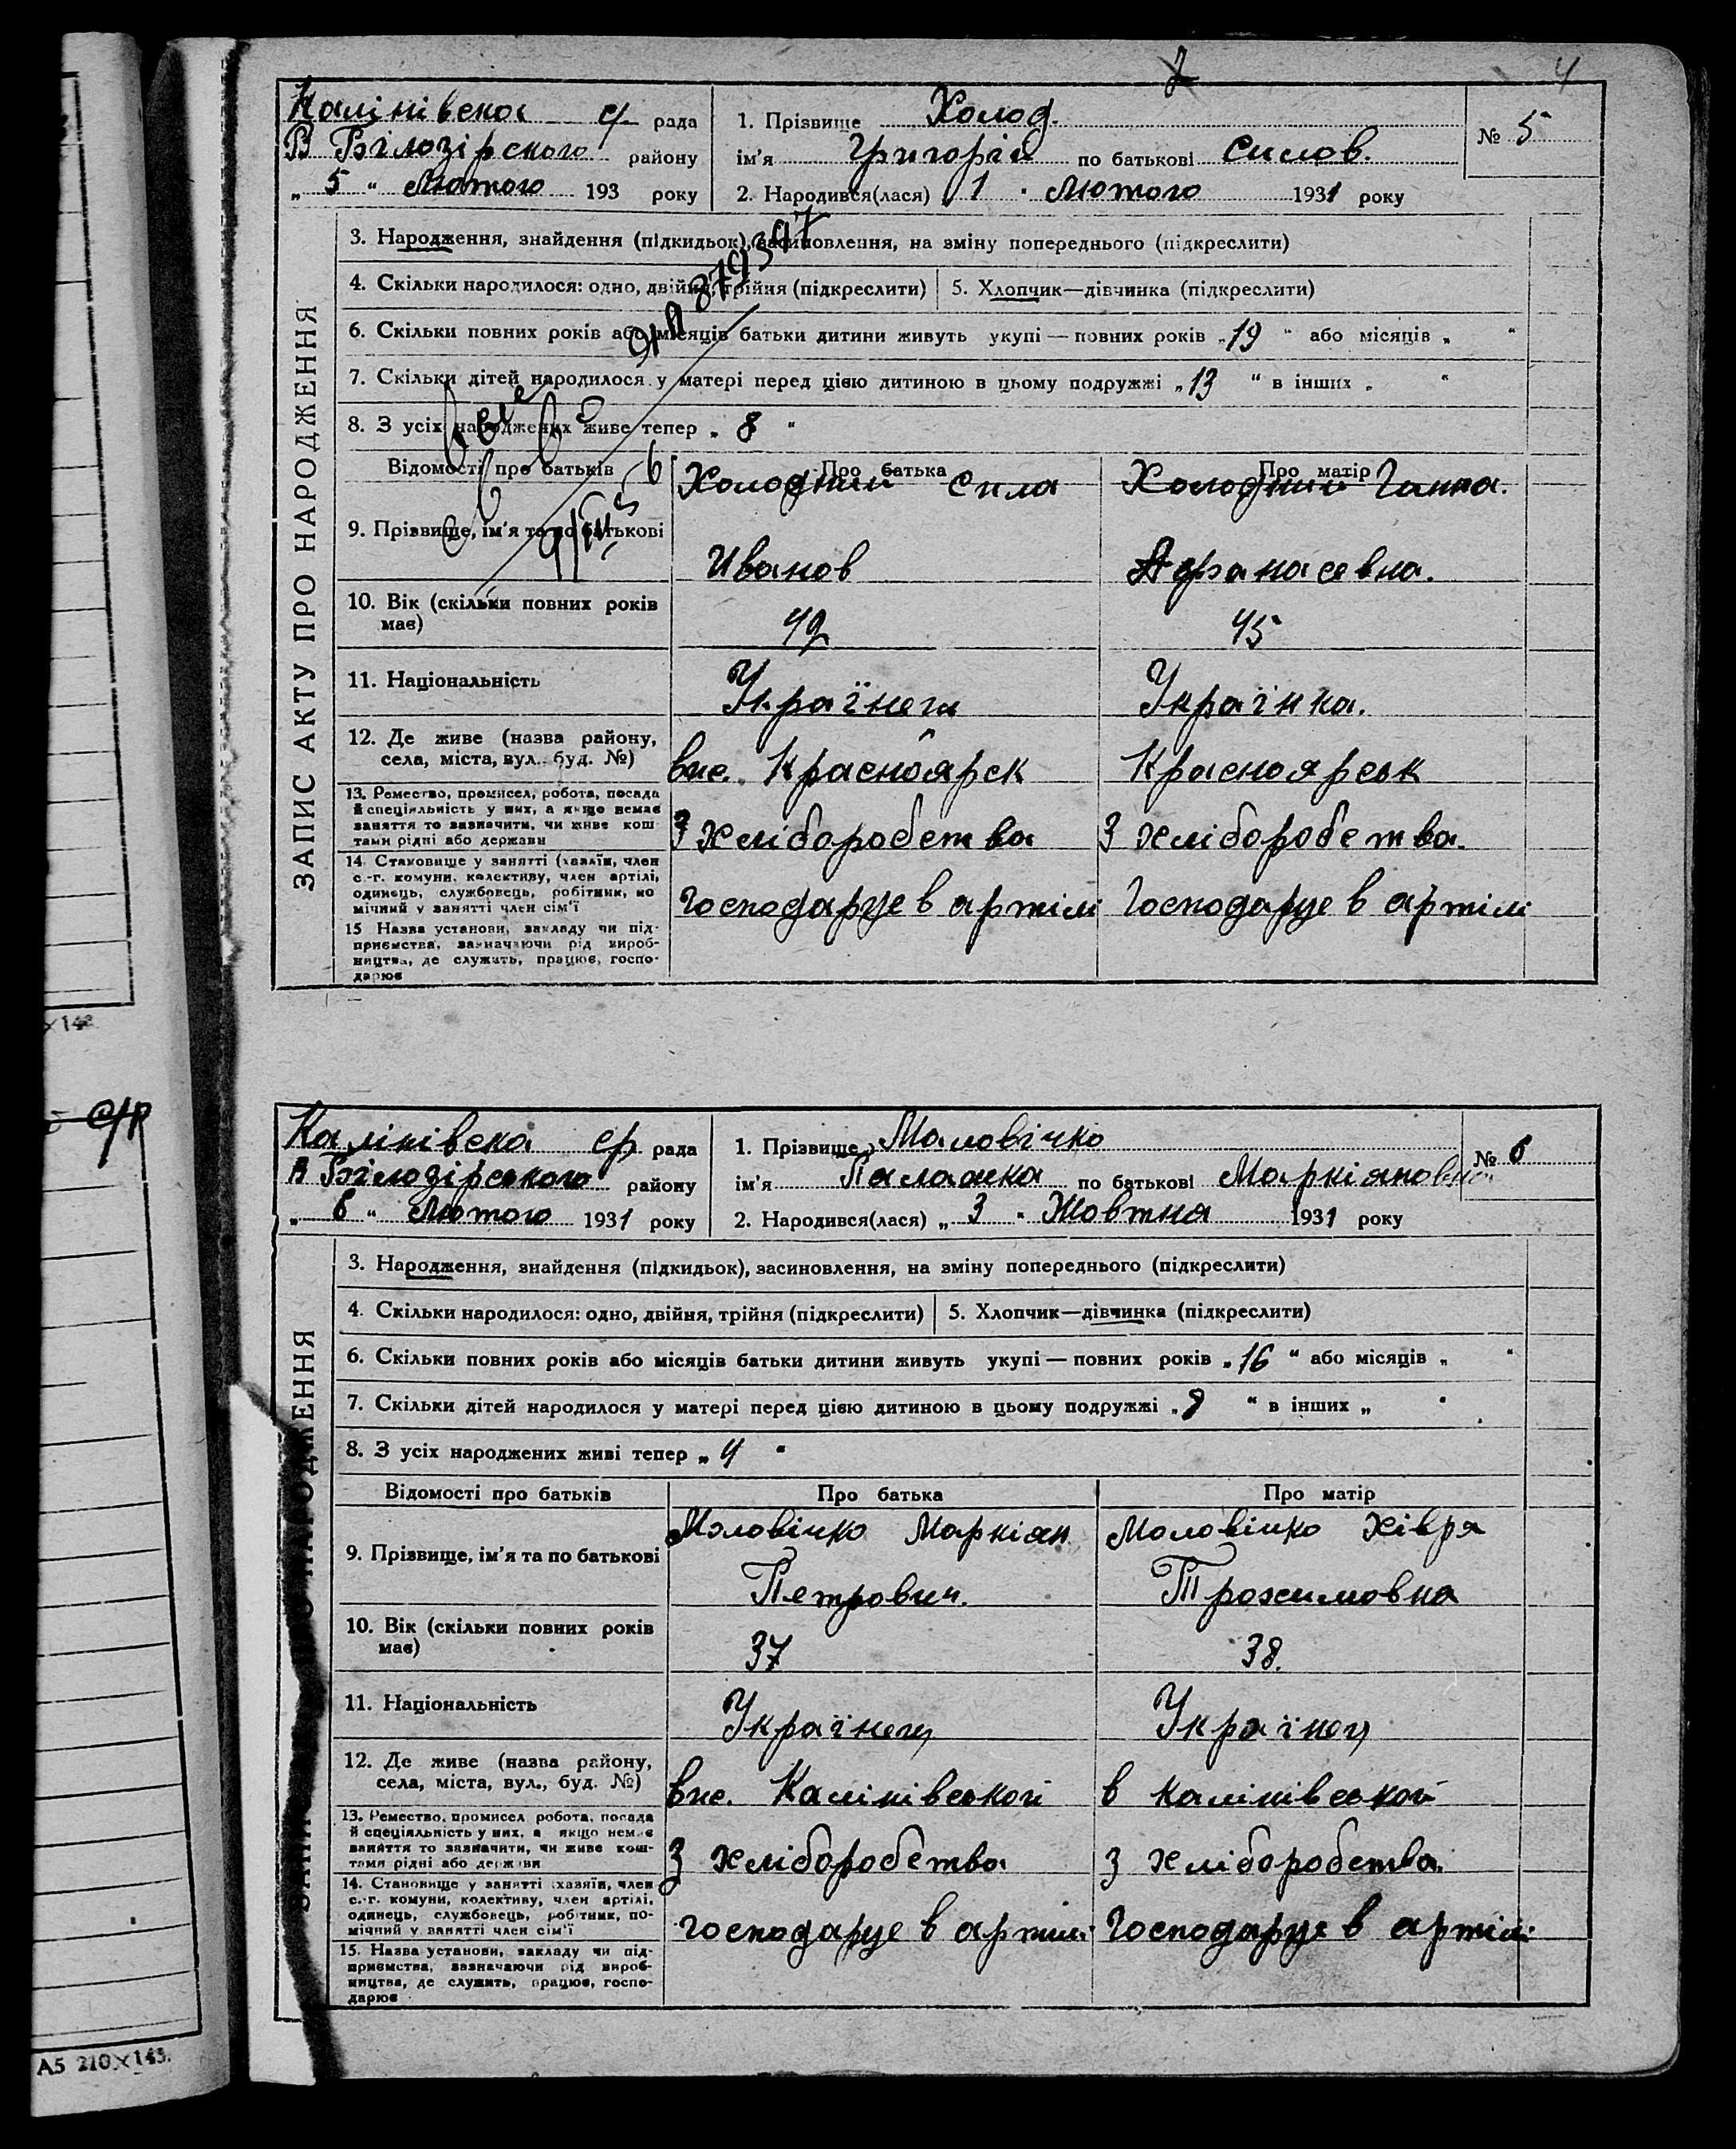 2 4
Калінівска с/ рада
В Білозірского району
„ 5 “ Лютого 193 року
1. Прізвище Холод.
ім'я Григорій по батькові Силов.
2. Народився(лася) „ 1 “ Лютого 1931 року
№ 5
ЗАПИС АКТУ ПРО НАРОДЖЕННЯ
3. Народження, знайдення (підкидьок), засиновлення, на зміну попереднього (підкреслити)
4. Скільки народилося: одно, двійня, трійня (підкреслити) 5. Хлопчик—дівчинка (підкреслити)
6. Скільки повних років або місяців батьки дитини живуть укупі — повних років „19 “ або місяців „ “
7. Скільки дітей народилося у матері перед цією дитиною в цьому подружжі „13 “ в інших „ “
8. З усіх народжених живе тепер „ 8 “
Відомості про батьків Про батька Про матір
9. Прізвище, ім'я та по батькові
Холодний Сила
Иванов
Холодний Ганна.
Афанасевна.
10. Вік (скільки повних років має)
49
45
11. Національність
Українець
Українка.
12. Де живе (назва району, села, міста, вул., буд. №)
вис. Красноярск
Красноярськ
13. Ремество, промисел, робота, посада
й спеціяльність у них, а якщо немає
заняття то зазначити, чи живе кош
тами рідні або держави
З хліборобства
З хліборобства.
14. Становище у занятті (хазяїн, член
с.-г. комуни, колективу, член артілі,
одинець, службовець, робітник, по
мічний у занятті член сім'ї
Господарує в артілі
Господарує в артілі
15 Назва установи, закладу чи під-
приємства, зазначаючи рід вироб-
ництва, де служить, працює, госпо-
дарює
с/р
Калінівска ср. рада
В Білозірського району
„ 6 “ Лютого 1931 року
1. Прізвище Маловічко
ім'я Палажка по батькові Маркіяновна
2. Народився(лася) „ 3 “ Жовтня 1931 року
№ 6
3. Народження, знайдення (підкидьок), засиновлення, на зміну попереднього (підкреслити)
4. Скільки народилося: одно, двійня, трійня (підкреслити) 5. Хлопчик—дівчинка (підкреслити)
6. Скільки повних років або місяців батьки дитини живуть укупі — повних років „16 “ або місяців „ “
7. Скільки дітей народилося у матері перед цією дитиною в цьому подружжі „ “ в інших „ “
8. З усіх народжених живі тепер „ 4 “
Відомості про батьків Про батька Про матір
9. Прізвище, ім'я та по батькові
Маловічко Маркіян
Петрович.
Маловічко Хівря
Трохимовна
10. Вік (скільки повних років має)
37
38.
11. Національність
Українец
12. Де живе (назва району, села, міста, вул., буд. №)
вис. Калінівської
в Калінівськой
13. Ремество, промисел робота, посада
й спеціяльність у них, а якщо немає
заняття то зазначити, чи живе кош-
тами рідні або держави
З хліборобства
З хліборобства.
14. Становище у занятті (хазяїн, член
с.-г. комуни, колективу, член артілі,
одинець, службовець, робітник, по-
мічний у занятті член сім'ї
господарує в артілі
Господарує в артілі
15. Назва установи, закладу чи під-
приємства, зазначаючи рід вироб-
ництва, де служить, працює, госпо-
дарює
А5 210×143.